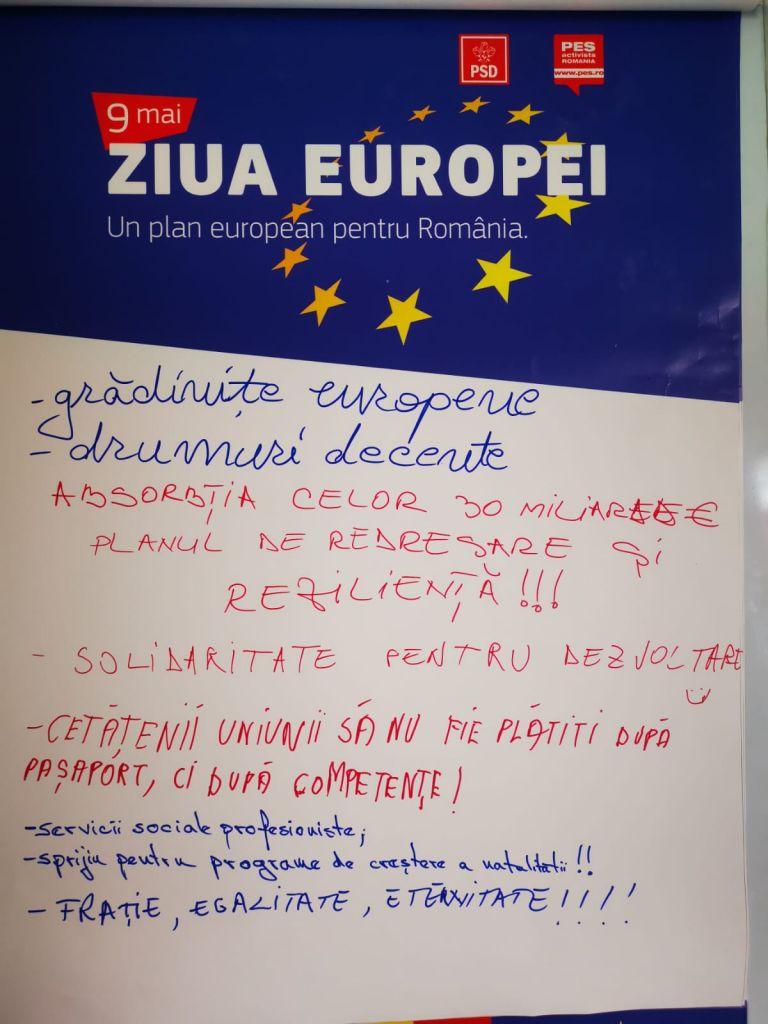 PSD
PES
activists
ROMANIA
www.pes.ro
9 mai
ZIUA EUROPEI
Un plan european pentru România.
- grădinițe europene
- drumuri decente
ABSORBȚIA CELOR 30 MILIARDE €
PLANUL DE REDRESARE ȘI
REZILIENȚĂ!!!
- SOLIDARITATE PENTRU DEZVOLTARE
- CETĂȚENII UNIUNII SĂ NU FIE PLĂTITI DUPĂ
PAȘAPORT, CI DUPĂ COMPETENȚE!
- servicii sociale profesioniste;
- sprijin pentru programe de creștere a natalitatii!!
- FRAȚIE, EGALITATE, ETERNITATE!!!!